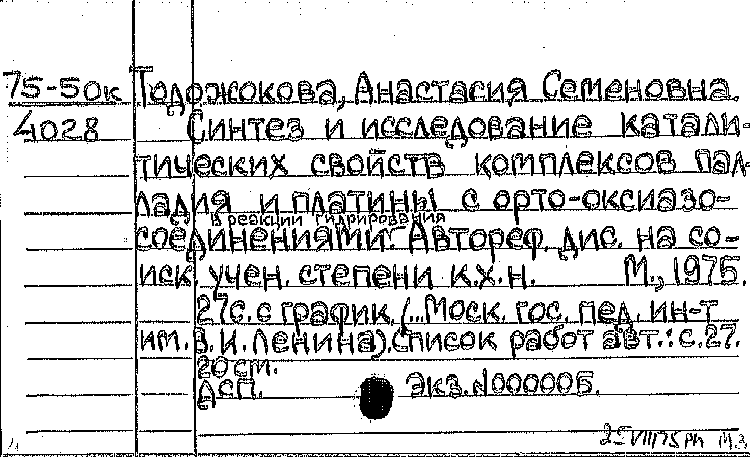 75-50к Тодожокова, Анастасия Семеновна.
4028 Синтез и исследование катали-
тических свойств комплексов пал-
ладия и платины с орто-оксиазо-
в реакции гидрирования
соединениями. Автореф. дис. на со-
иск. учен. степени к.х.н. М., 1975.
27с. с график. (...Моск. гос. пед. ин-т
им. В. И. Ленина). Список работ авт.: с. 27.
20 см.
ДСП. Экз. N000006.
25 VIII 75 М.З